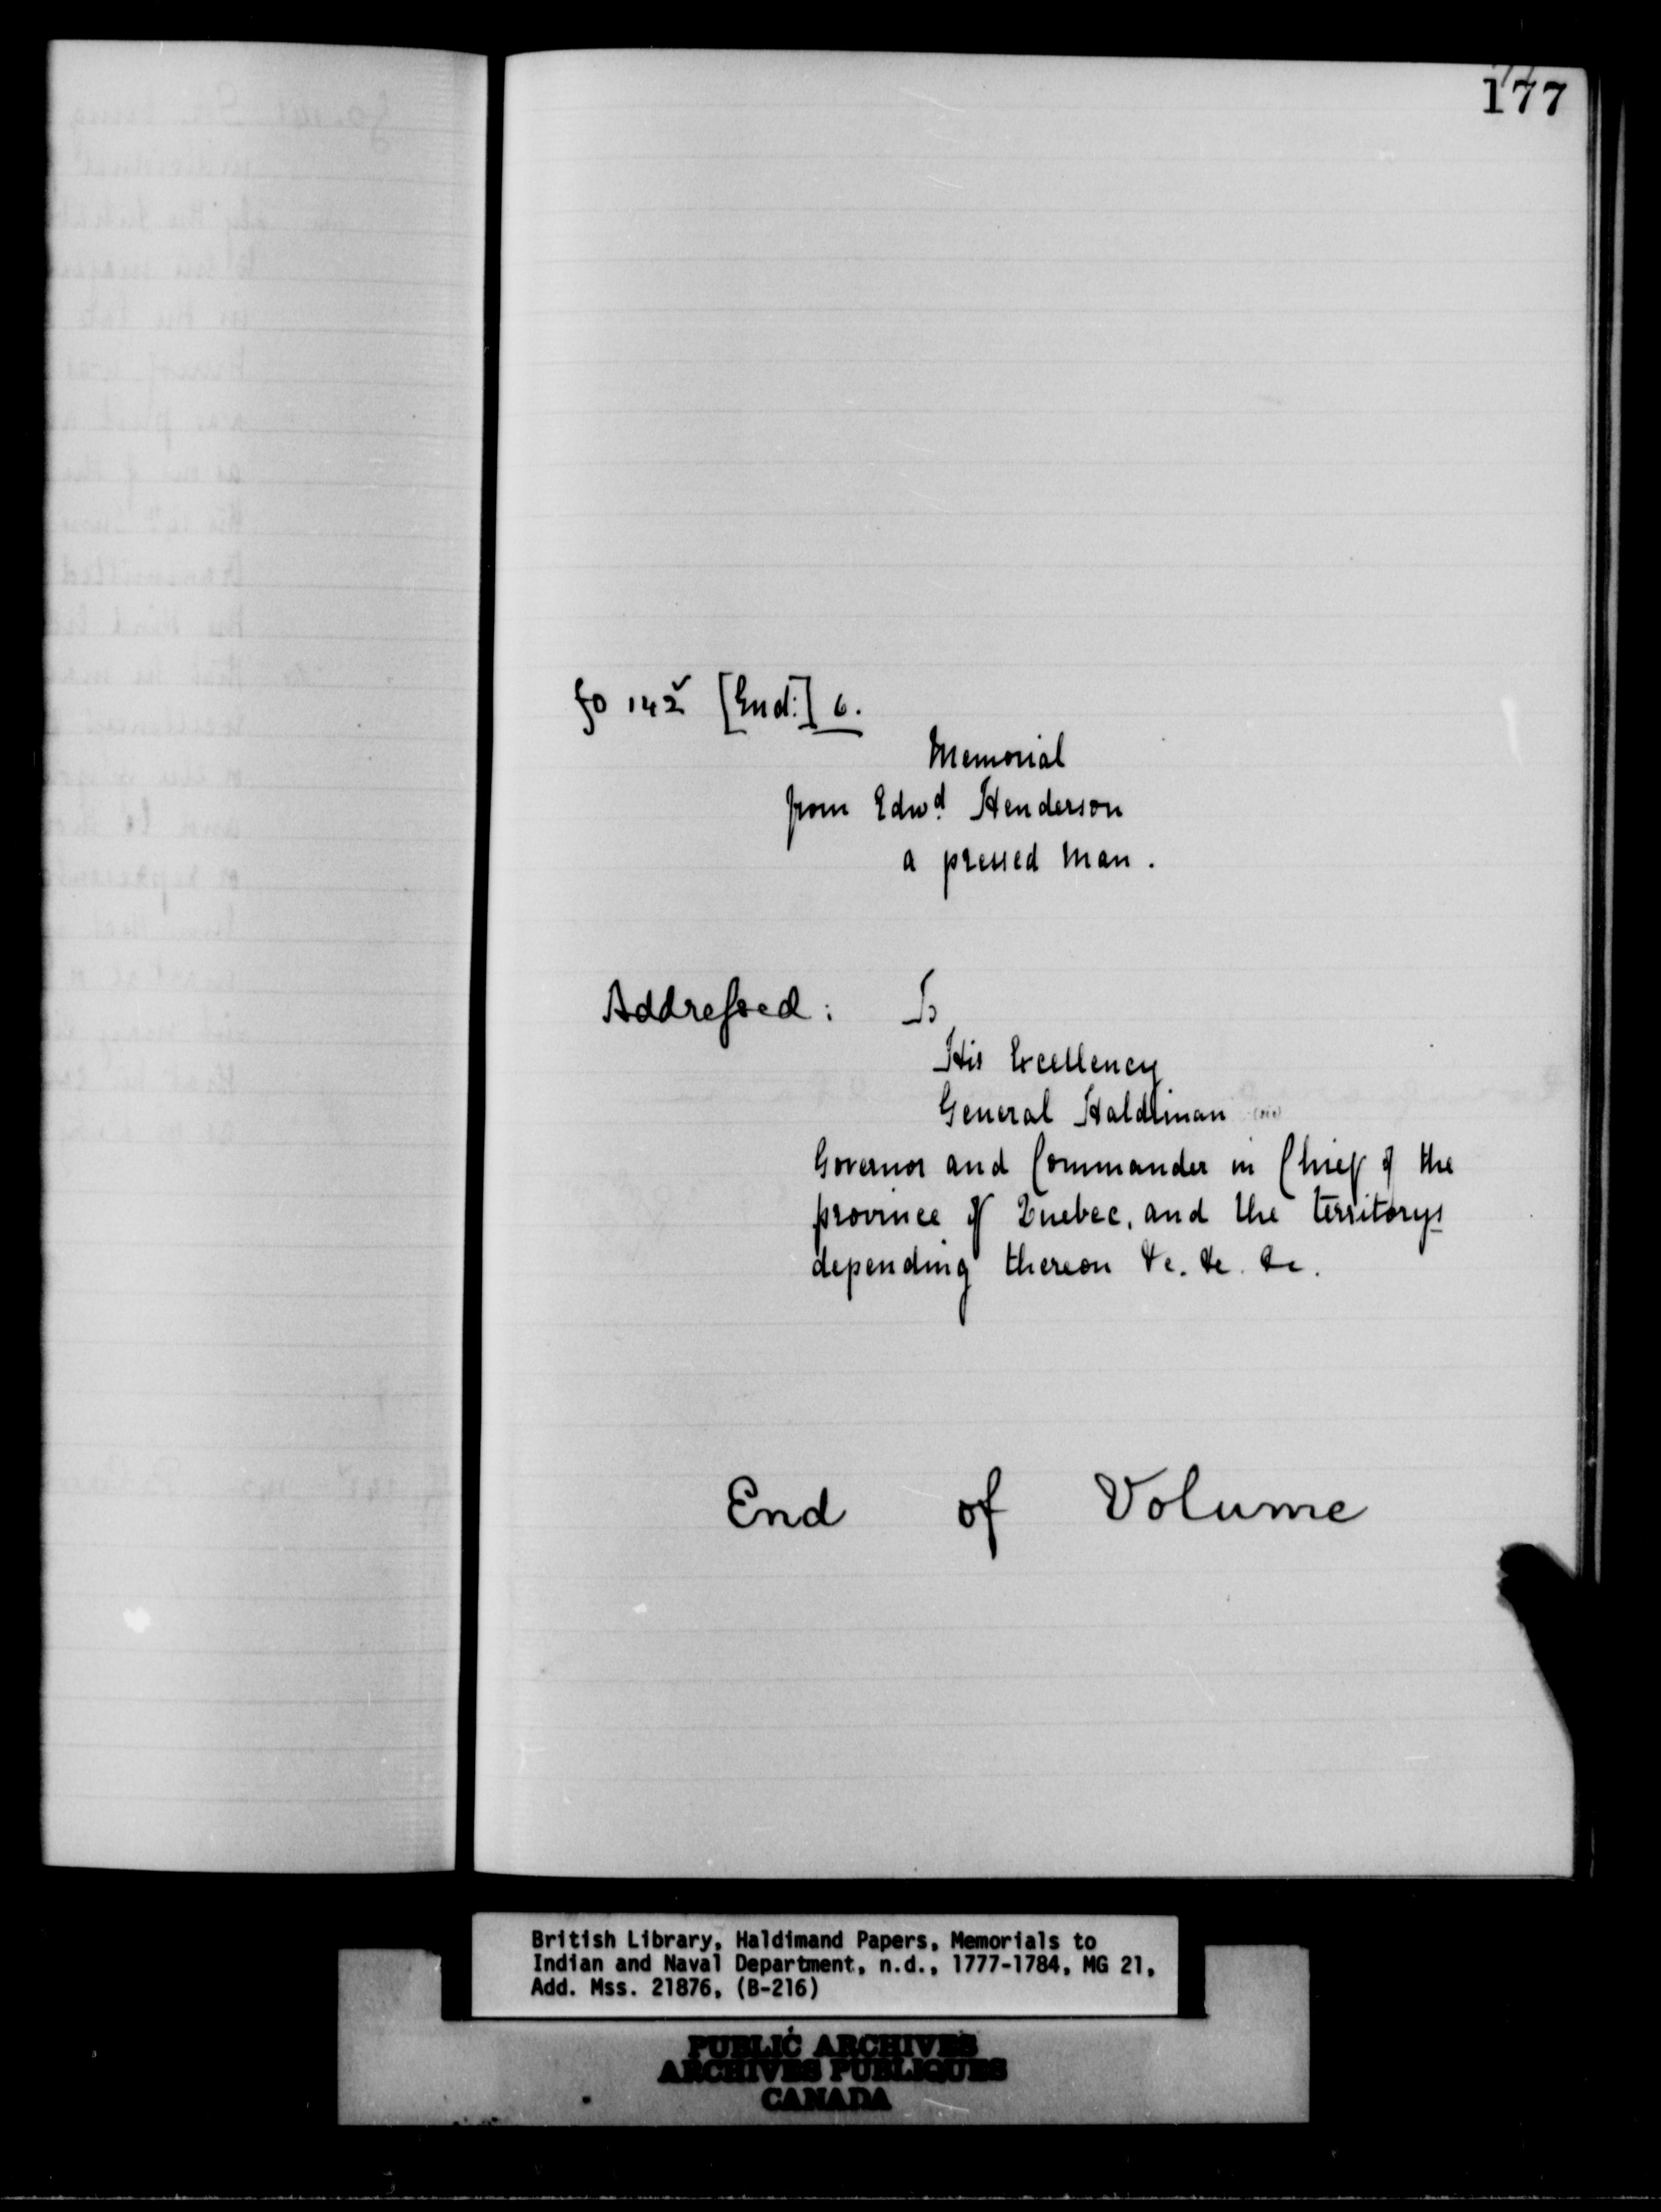 177
fo 142v [End:] 6.
Memorial
from Edwd Henderson
a pressed Man.
Addressed: To
His Excellency
General Haldiman (sic)
Governor and Commander in Chief of the
province of Quebec, and the territorys
depending thereon &c. &c. &c.
End of Volume
British Library, Haldimand Papers, Memorials to
Indian and Naval Department, n.d., 1777-1784, MG 21,
Add. Mss. 21876, (B-216)
PUBLIC ARCHIVES
ARCHIVES PUBLIQUES
CANADA